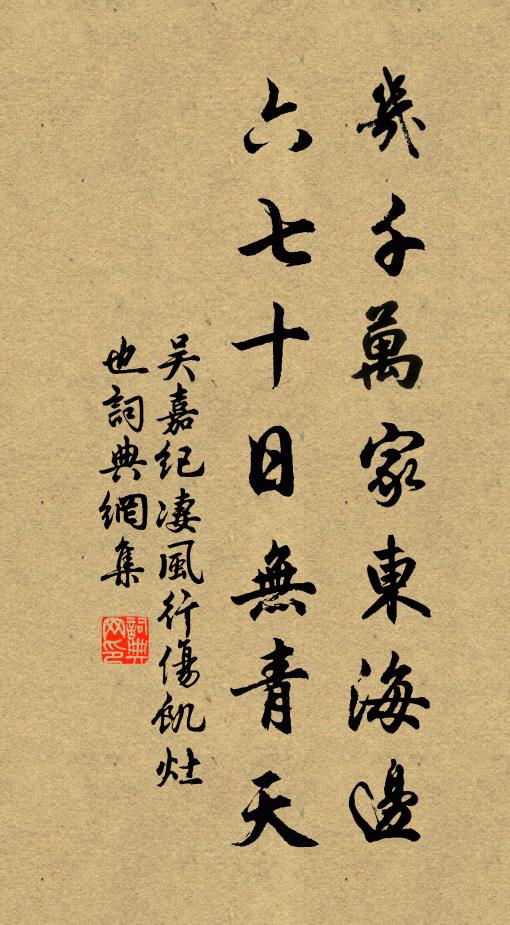 幾千萬家東海邊
六七十日無青天
吳嘉紀淒風行傷飢灶
也詞典網集
詞典
网印